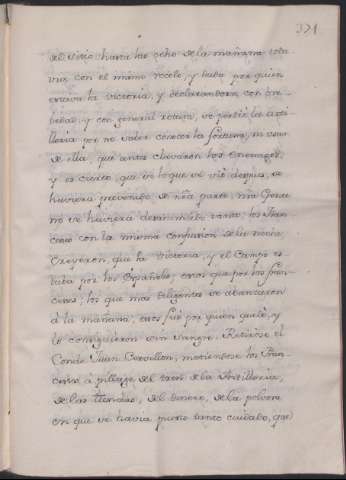 371
del sitio hasta las ocho de la mañana esta-
van con el mismo recelo, y duda por quien
estava la victoria, y declarandose con
y con general se perdio la arti-
lleria por no saver conocer la fortuna, ni usar
de ella, que antes clavaron los Enemigos,
y es cierto, que lo que se vió despues, se
huviera prevenido de nra parte, nra Gente
no se huviera los Fran-
ceses con la misma confusion de la noche,
Creyeron, que la victoria, y el Campo es-
taba por los Españoles, estos que por los Fran-
ceses; los que mas diligentes se abanzaron
á la mañana, esos fué por quien quedó, y
lo consiguieron sin sangre. Retiróse el
Conde Juan Cervellon, metieronse los Fran-
ceses á pillage del tren de la Artilleria,
de las tiendas, del dinero, de la polvora
en que se havia puesto tanto cuidado, que